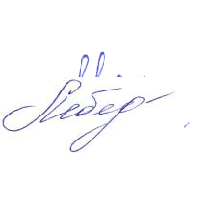 Лебед